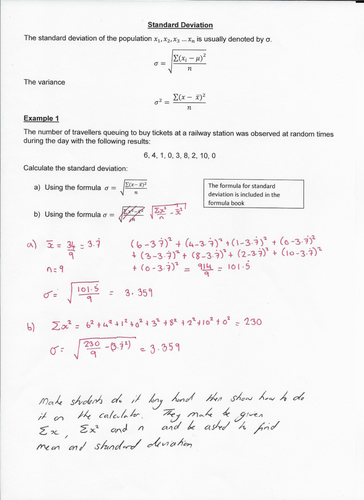 Standard Deviation
The standard deviation of the population x₁, x₂, x₃ … xₙ is usually denoted by σ.
σ = √(Σ(xᵢ − μ)² / n)
The variance
σ² = Σ(x − x̄)² / n
Example 1
The number of travellers queuing to buy tickets at a railway station was observed at random times
during the day with the following results:
6, 4, 1, 0, 3, 8, 2, 10, 0
Calculate the standard deviation:
a) Using the formula σ = √(Σ(x−x̄)² / n)
The formula for standard
deviation is included in the
formula book
b) Using the formula σ = √(Σx² / n − x̄²)
a) x̄ = 34/9 = 3.7̇ (6−3.7̇)² + (4−3.7̇)² + (1−3.7̇)² + (0−3.7̇)²
+ (3−3.7̇)² + (8−3.7̇)² + (2−3.7̇)² + (10−3.7̇)²
n = 9 + (0−3.7̇)² = 914/9 = 101.5̇
σ = √(101.5̇ / 9) = 3.359
b) Σx² = 6² + 4² + 1² + 0² + 3² + 8² + 2² + 10² + 0² = 230
σ = √(230/9 − (3.7̇)²) = 3.359
Make students do it long hand then show how to do
it on the calculator. They make be given
Σx, Σx² and n and be asked to find
mean and standard deviation